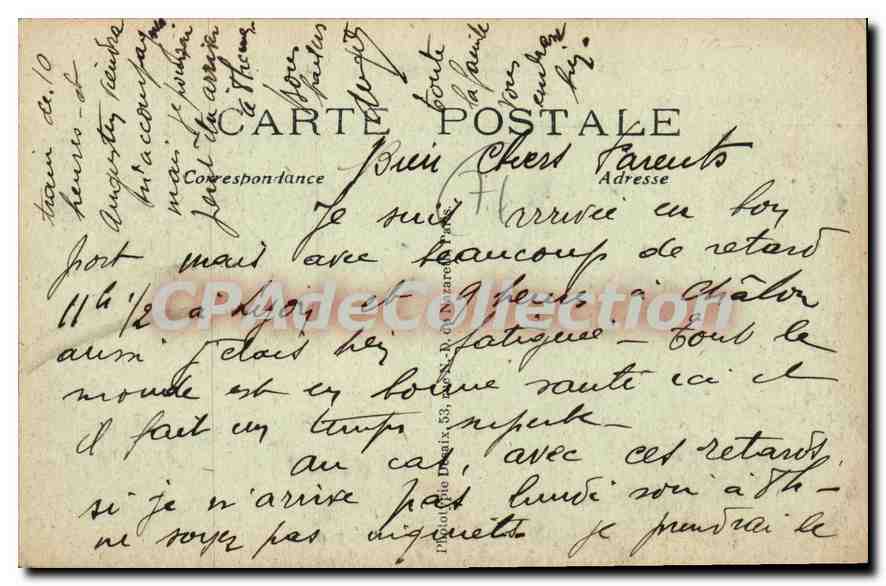 CARTE POSTALE
Correspondance
Adresse
Bien Chers Parents
Je suis arrivée en bon
port mais avec beaucoup de retard
11h 1/2 à Lyon et 9 heures à Châlon
aussi j'étais bien fatiguée - Tout le
monde est en bonne santé ici et
il fait un temps superbe -
au cas, avec ces retards,
si je n'arrive pas lundi soir à 8h -
ne soyez pas inquiets je prendrai le
train de 10
heures - et
Augustin viendra
m'accompagner
mais je pourrai
arriver
à 8 heures
Bons
baisers
Toute
la famille
vous
embrasse
bien.
Phototypie Desaix, 53, rue N.-D. de Nazareth, Paris.
CPAdeCollection